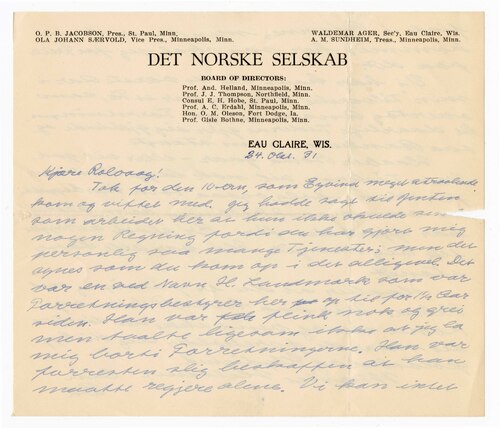 O. P. B. JACOBSON, Pres., St. Paul, Minn.
OLA JOHANN SÆRVOLD, Vice Pres., Minneapolis, Minn.
WALDEMAR AGER, Sec'y, Eau Claire, Wis.
A. M. SUNDHEIM, Treas., Minneapolis, Minn.
DET NORSKE SELSKAB
BOARD OF DIRECTORS:
Prof. And. Helland, Minneapolis, Minn.
Prof. J. J. Thompson, Northfield, Minn.
Consul E. H. Hobe, St. Paul, Minn.
Prof. A. C. Erdahl, Minneapolis, Minn.
Hon. O. M. Oleson, Fort Dodge, Ia.
Prof. Gisle Bothne, Minneapolis, Minn.
EAU CLAIRE, WIS.
24. Okt. 31
Kjære Rolvaag!
Tak for den 10-ern, som Eyvind meget
kom og viftet med. Jeg hadde sagt til
som arbeider her at hun ikke
nogen Regning fordi du har gjort mig
personlig saa mange Tjenester; men det
synes som du kom op i det alligevel. Det
var en ved Navn H. Landmark som var
Forretningsbestyrer her op til for 1½ Aar
siden. Han var flink nok og grei
men taalte ligesom ikke at jeg la
mig borti Forretningerne. Han var
forresten slig beskaffen at han
maatte regjere alene. Vi kan intet